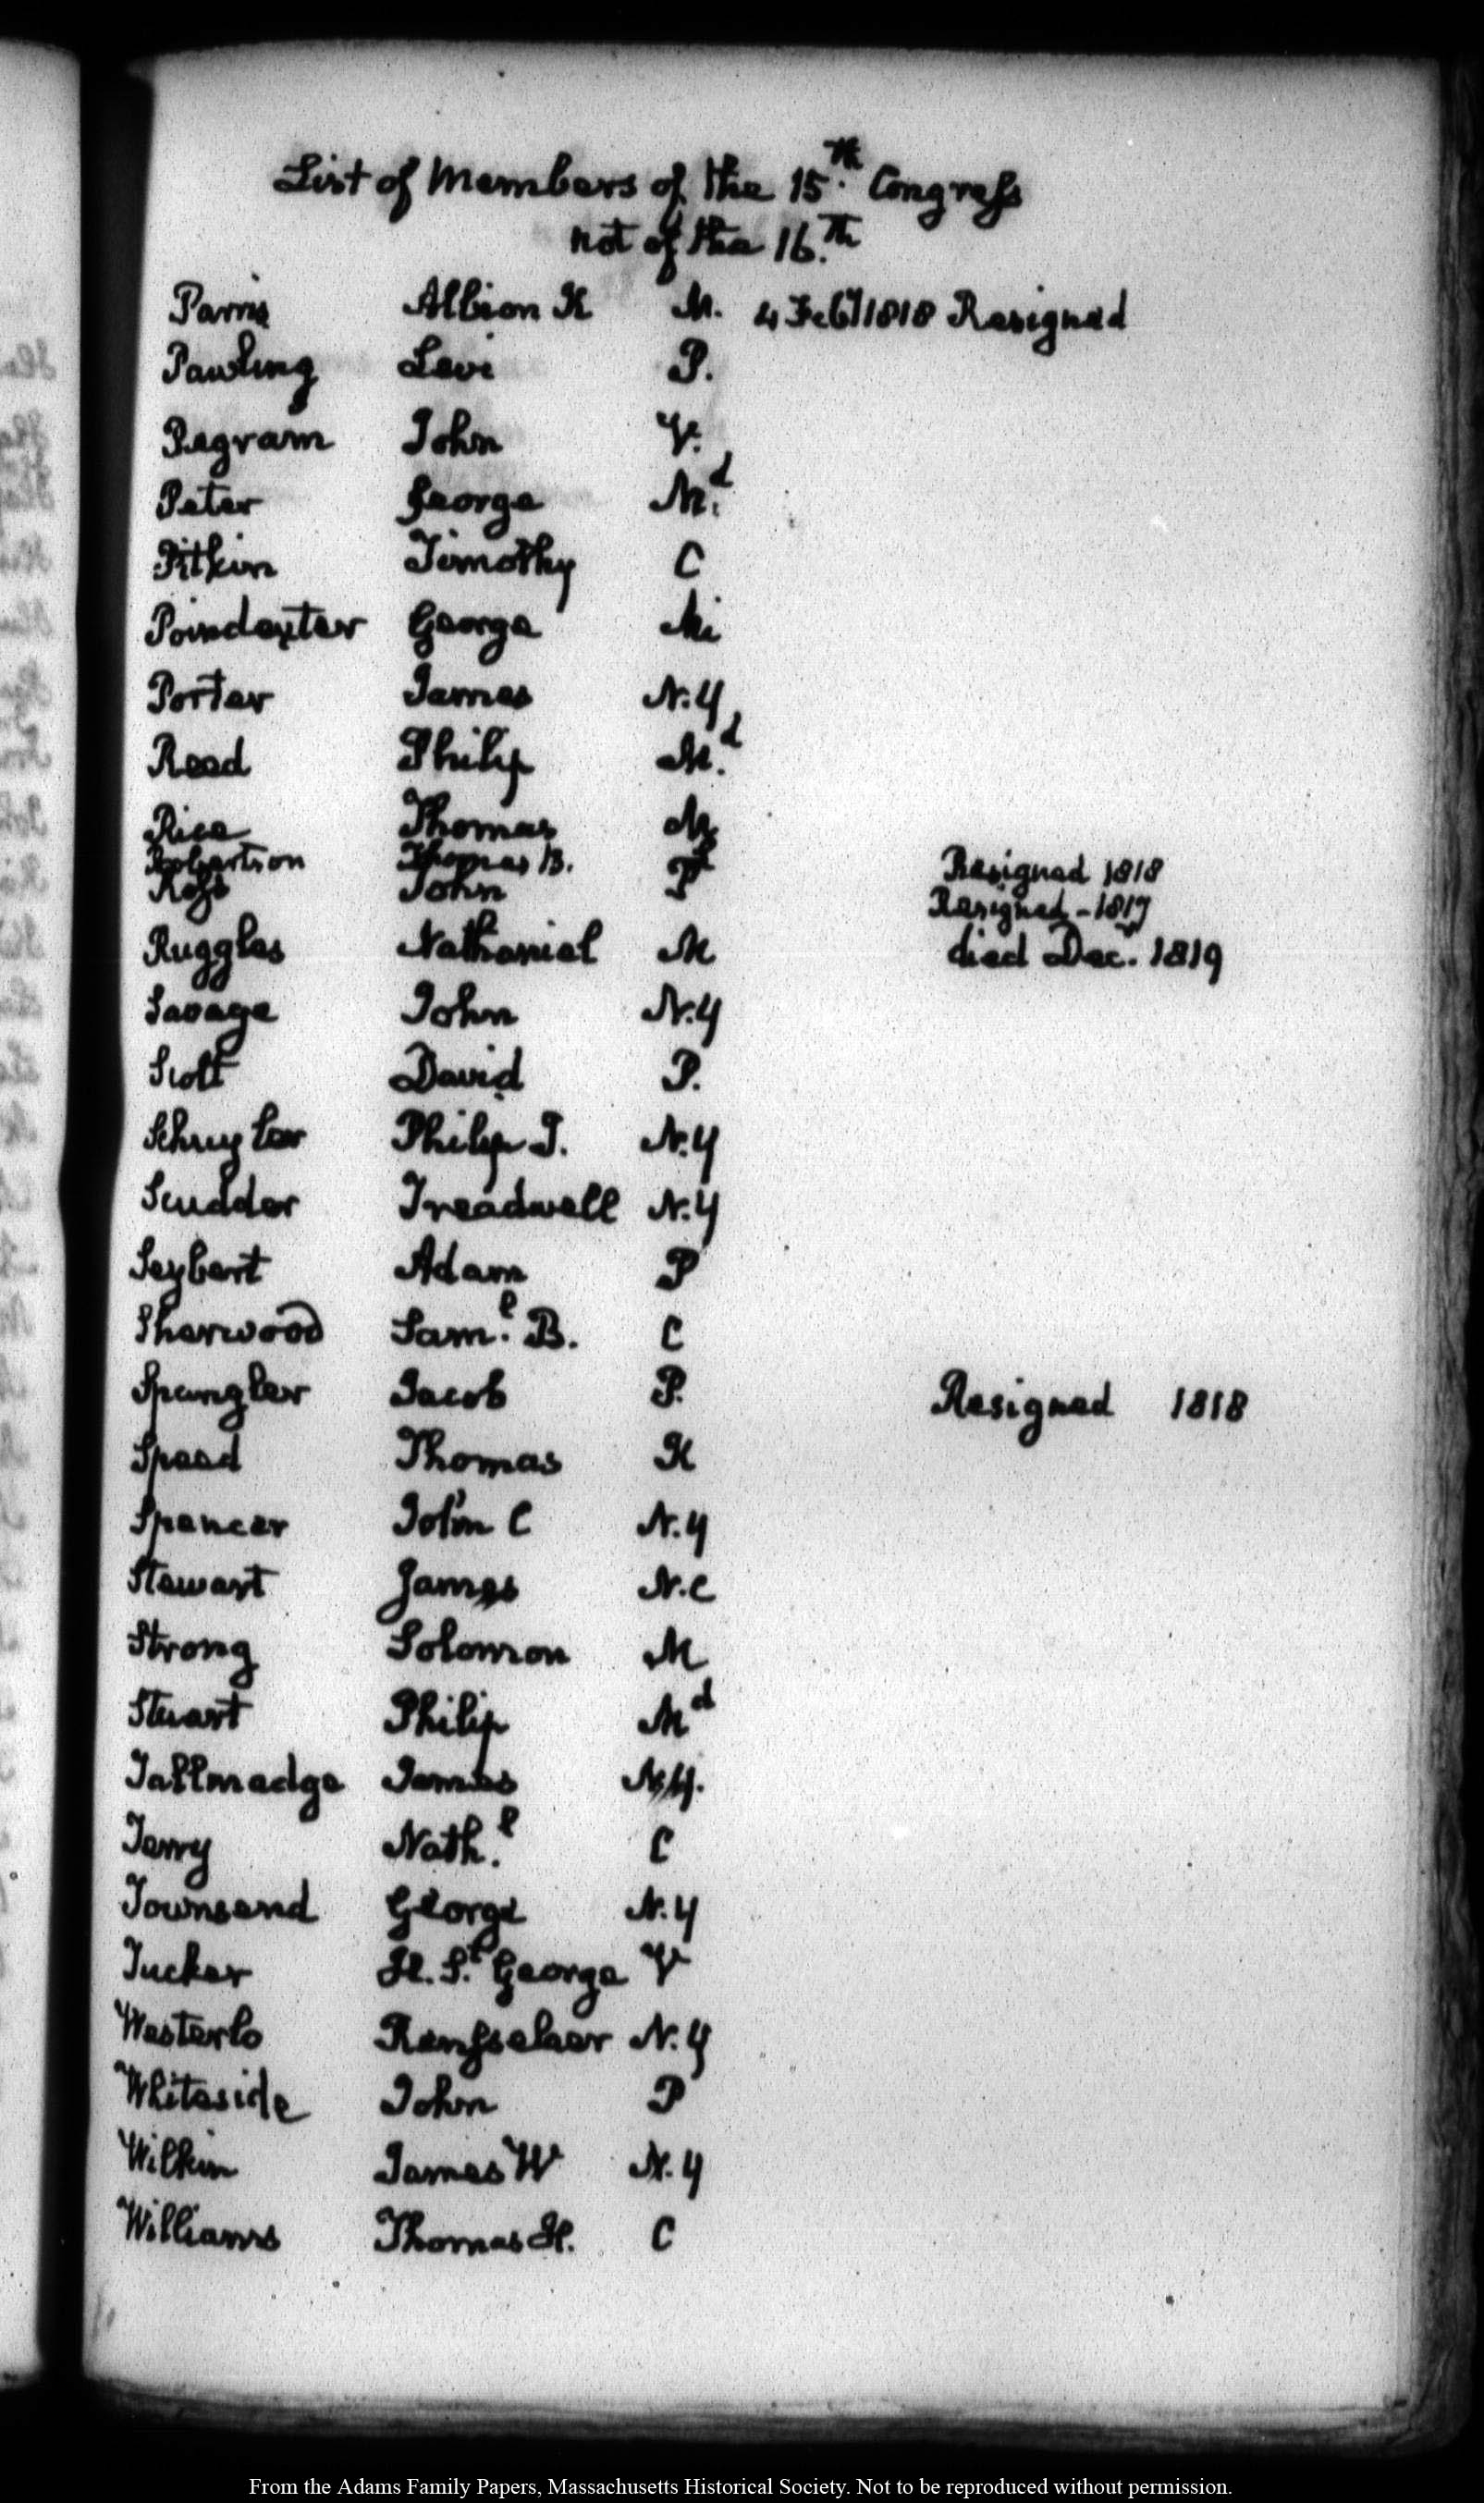 List of Members of the 15.th Congress
not of the 16.th
Parris Albion K M. 4 Feby 1818 Resigned
Pawling Levi P.
Pegram John V.
Peter George M.d
Pitkin Timothy C
Poindexter George Mi
Porter James N.Y
Reed Philip M.d
Rice Thomas M
Robertson Thomas B. Resigned 1818
Ross John P Resigned - 1817
Ruggles Nathaniel M died Decr. 1819
Savage John N.Y
Scott David P.
Schuyler Philip J. N.Y
Scudder Treadwell N.Y
Seybert Adam P
Sherwood Sam.l B. C
Spangler Jacob P. Resigned 1818
Speed Thomas K
Spencer John C N.Y
Stewart James N.C
Strong Solomon M
Stuart Philip Md
Tallmadge James N.Y.
Terry Nath.l C
Townsend George N.Y
Tucker H. S.t George V
Westerlo Rensselaer N.Y
Whiteside John P
Wilkin James W N.Y
Williams Thomas H. C
From the Adams Family Papers, Massachusetts Historical Society. Not to be reproduced without permission.